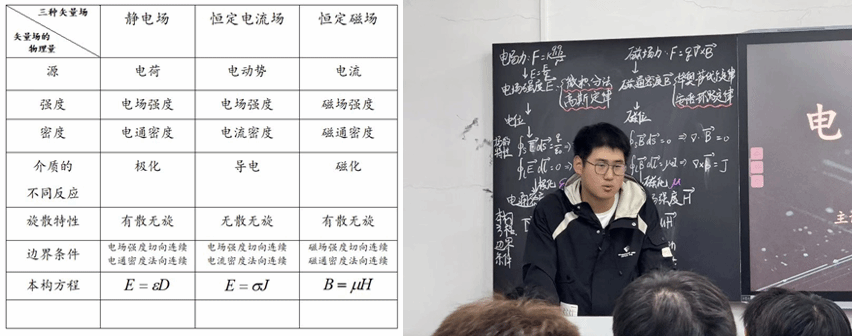 三种矢量场
矢量场的
物理量
静电场 恒定电流场 恒定磁场
源 电荷 电动势 电流
强度 电场强度 电场强度 磁场强度
密度 电通密度 电流密度 磁通密度
介质的
不同反应
极化 导电 磁化
旋散特性 有散无旋 无散无旋 有散无旋
边界条件
电场强度切向连续 电场强度切向连续 磁场强度切向连续
电通密度法向连续 电流密度法向连续 磁通密度法向连续
本构方程 E = εD E = σJ B = μH
电场力: F=
磁场力: F=q
电场强度E
微积分法
高斯定律
磁通密度B
毕奥-萨伐尔定律
安培环路定律
电位
磁位
特性
∇·B=0
∇×B=J
磁化 μ
强度 H
μH
本构
边界
条件
电